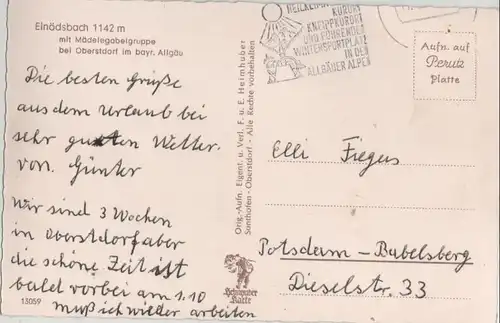 Einödsbach 1142 m
mit Mädelegabelgruppe
bei Oberstdorf im bayr. Allgäu
Die besten Grüße
aus dem Urlaub bei
sehr guten Wetter.
von. Günter
Wir sind 3 Wochen
in Oberstdorf aber
die schöne Zeit ist
bald vorbei am 1.10
muß ich wieder arbeiten
13059
Orig.-Aufn. Eigent. u. Verl. F. u. E. Heimhuber
Sonthofen - Oberstdorf - Alle Rechte vorbehalten
Heimhuber
Karte
KURORT
KNEIPPKURORT
UND FÜHRENDER
WINTERSPORTPLATZ
IN DEN
ALLGÄUER ALPEN
Aufn. auf
Perutz
Platte
Elli Fiegus
Potsdam-Babelsberg
Dieselstr. 33